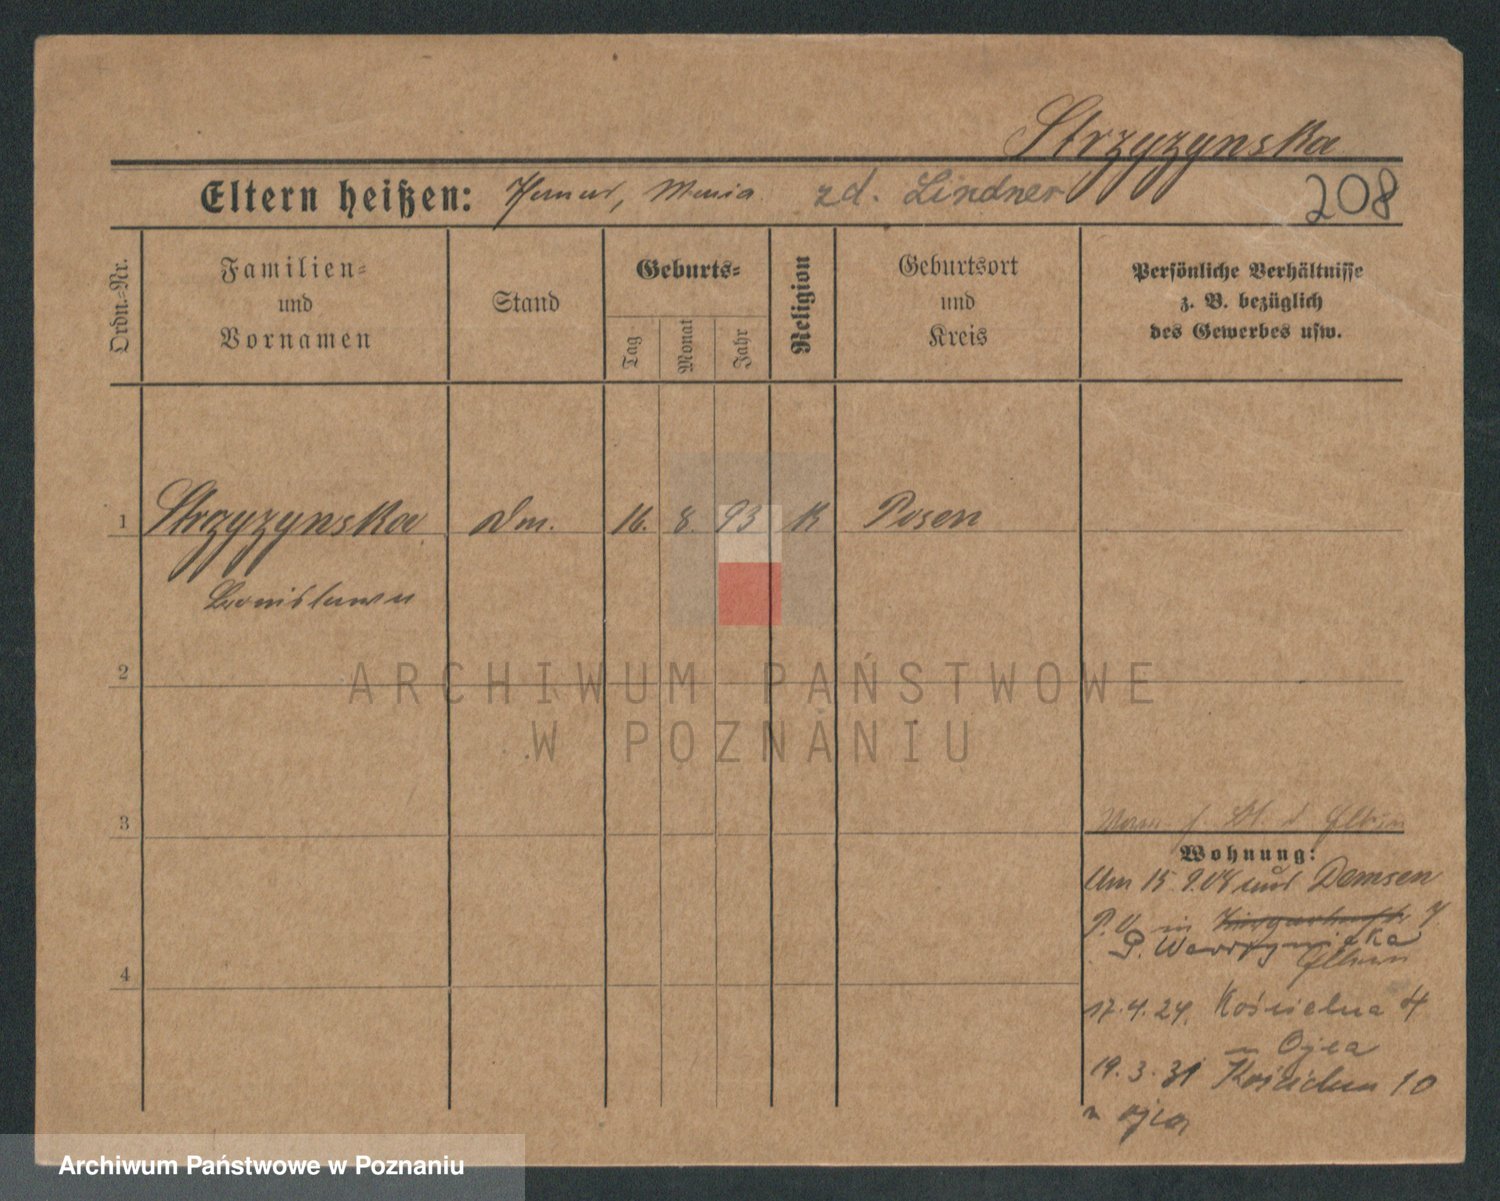 Strzyzynska
Eltern heißen: Maria zd. Lindner 208
Ordn.-Nr.
Familien-
und
Vornamen
Stand
Geburts-
Tag
Monat
Jahr
Religion
Geburtsort
und
Kreis
Persönliche Verhältnisse
z. B. bezüglich
des Gewerbes usw.
1 Strzyzynska 16. 8. 93 K Posen
Bronislawa
2
ARCHIWUM PAŃSTWOWE
W POZNANIU
3
Wohnung:
15. 9. 08 Demsen
P.
4
17.4.24. Kościelna 4
Ojca
19.3.31 Kościelna 10
ojca
Archiwum Państwowe w Poznaniu